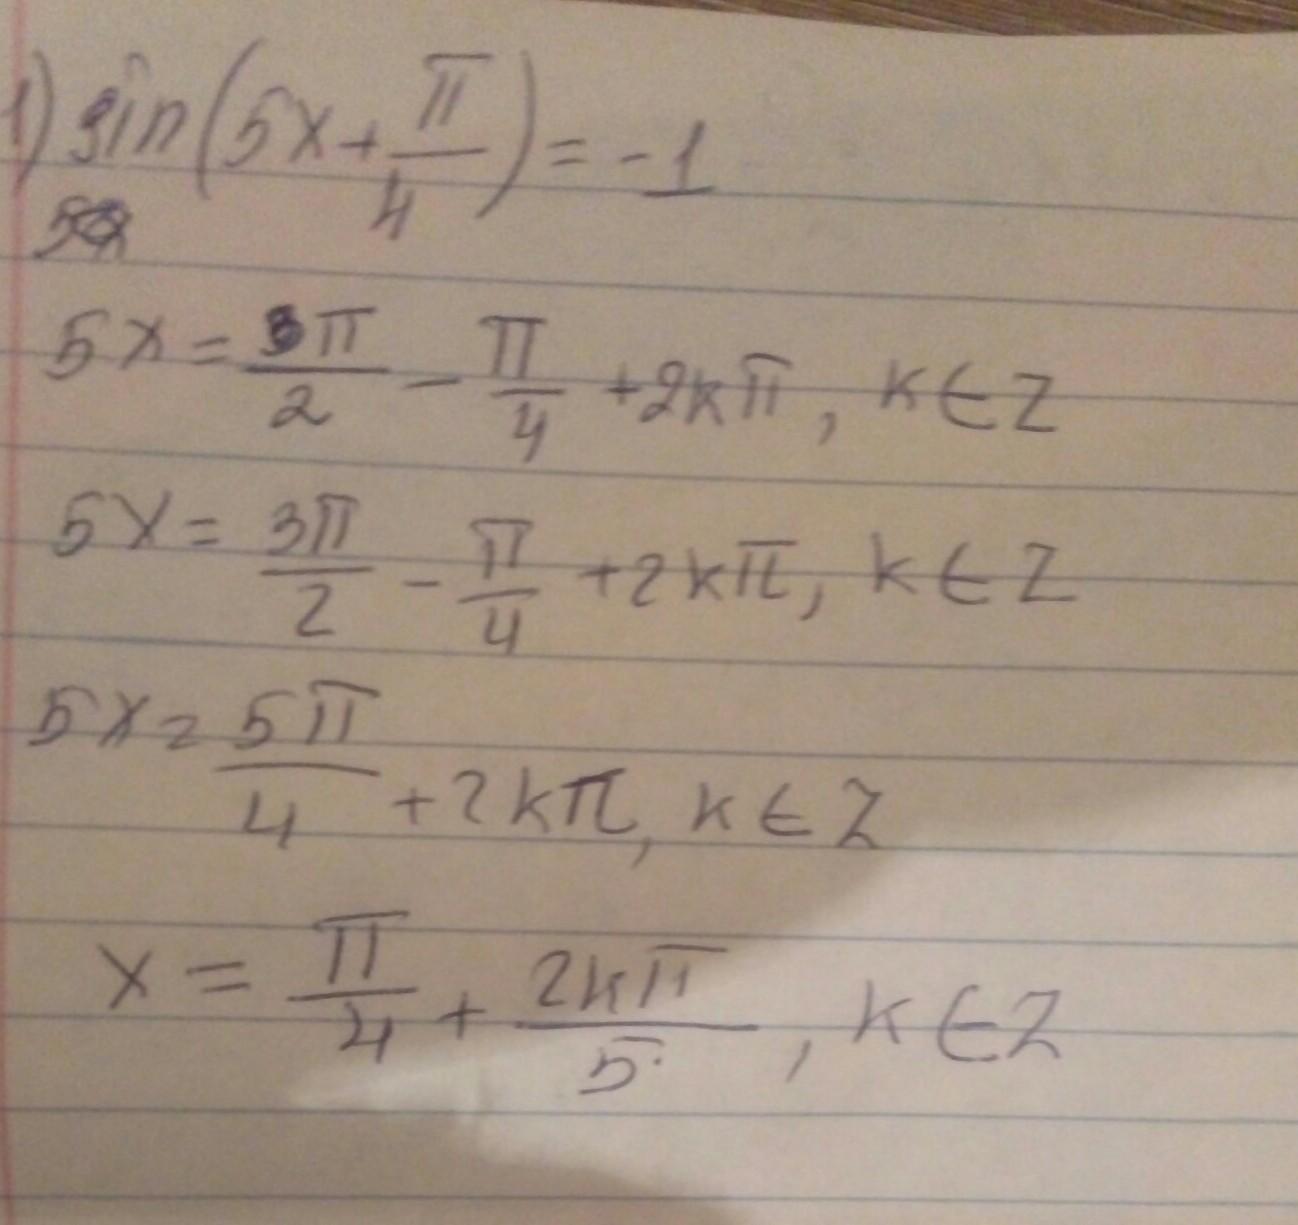 1) sin(5x + π/4) = -1
5x = 3π/2 - π/4 + 2kπ, k ∈ Z
5x = 3π/2 - π/4 + 2kπ, k ∈ Z
5x = 5π/4 + 2kπ, k ∈ Z
x = π/4 + 2kπ/5, k ∈ Z